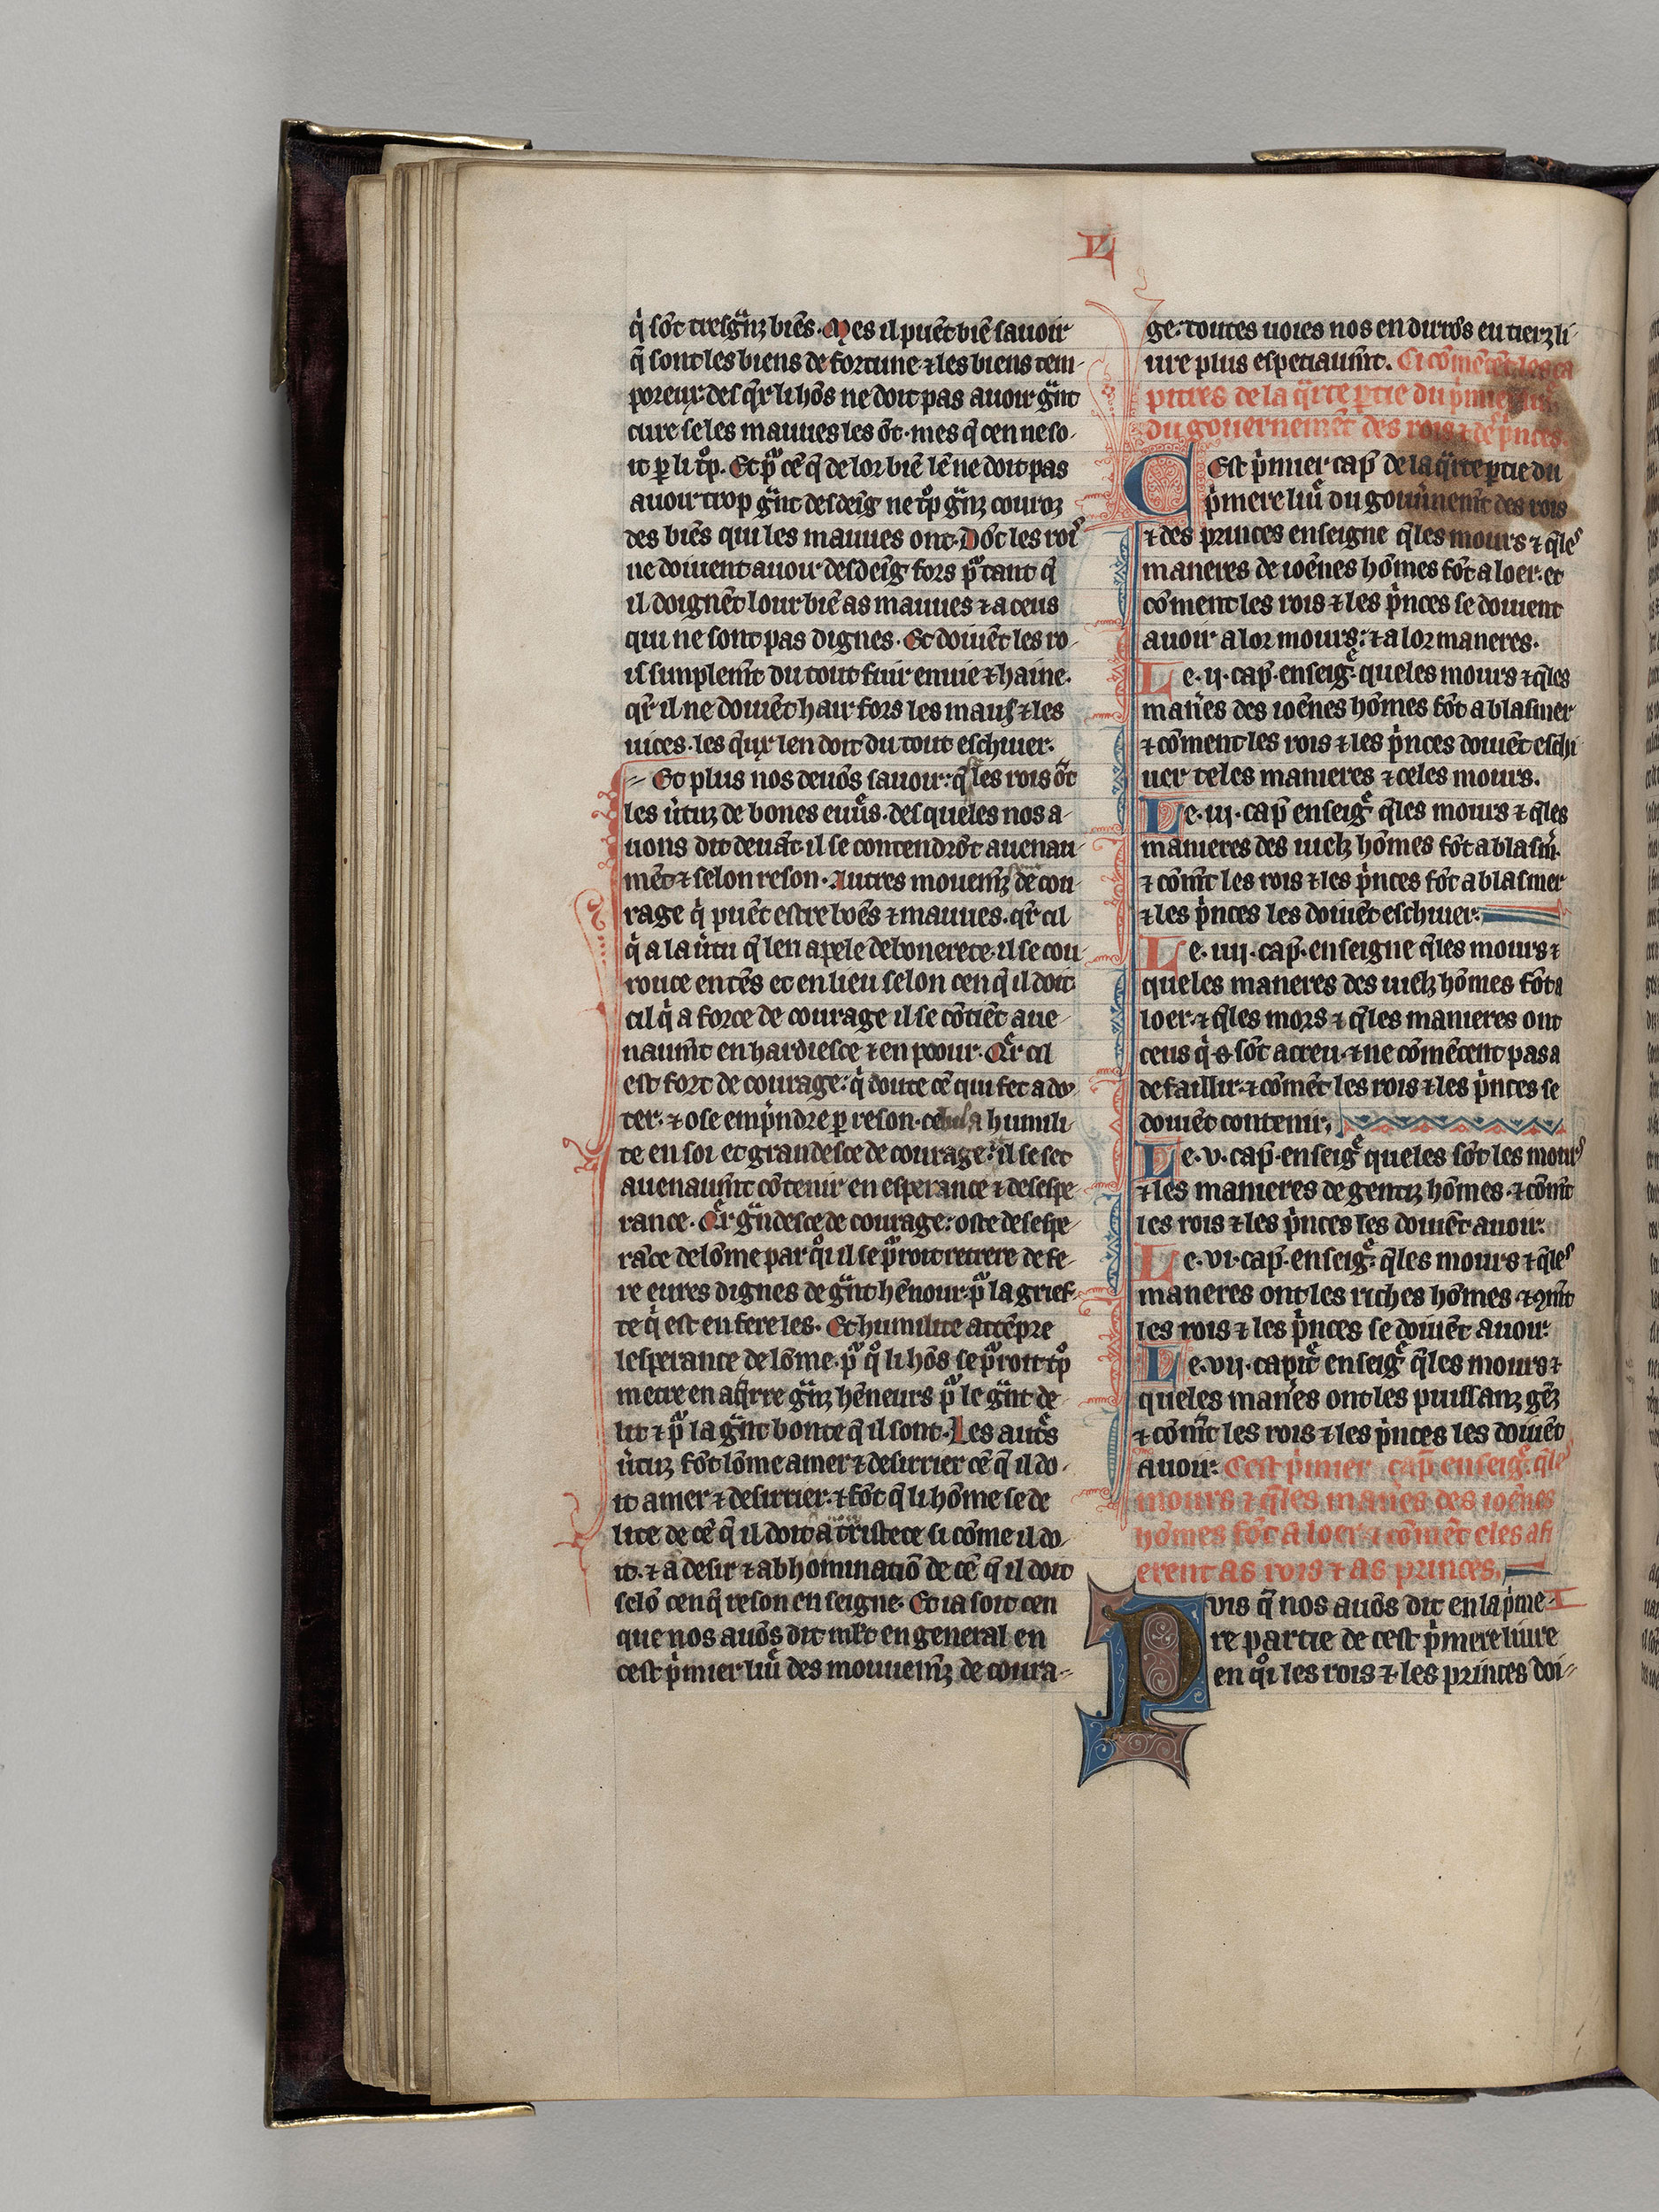 L
q̇ sōt tresgᷓnz biēs. Mes il puēt biē sauoir
q̄ sont les biens de fortune ⁊ les biens tem-
poreux des q̄x li hōs ne doit pas auoir gᷓnt
cure se les mauues les ōt. mes q̄ cen ne so-
it ꝑ li tͦp. Et pᷓ cē q̄ de lor biē lē ne doit pas
auoir trop gᷓnt desdeīg ne tͦp gᷓnz couroz
des biēs qui les mauues ont. Dōt les rois
ne doiuent auoir desdeīg fors pᷓ tant q̄
il doignēt lour biē as mauues ⁊ a ceus
qui ne sont pas dignes. Et doiuēt les ro-
is simplem̄t du tout fuir enuie ⁊ haine.
qᷓr il ne doiuēt hair fors les maus ⁊ les
uices. les q̄ux len doit du tout eschiuer.
Et plus nos deuōs sauoir: q̄ les rois ōt
les u̇tuz de bones euūs. des queles nos a-
uons dit deuāt. il se contendrōt auenau-
mēt ⁊ selon reson. Autres mouem̄z de cou-
rage q̇ puēt estre boēs ⁊ mauues. qᷓr cil
q̇ a la u̇tu q̄ len apele debonerete. il se cou-
rouce en tēs et en lieu selon cen q̄ il doit
cil q̇ a force de courage il se cōtiēt aue-
naum̄t en hardiesce ⁊ en poour. Qᷓr cil
est fort de courage: q̇ doute cē qui fet a do-
ter. ⁊ ose emṗndre ꝑ reson. humili-
te en soi et grandesce de courage: il se set
auenaum̄t cōtenir en esperance ⁊ desespe-
rance. Qᷓr gᷓndesce de courage: oste desespe-
rāce de lōme par qͦi il se pᷓroit retrere de fe-
re eures dignes de gᷓnt hēnour. pᷓ la grief-
te q̇ est en fere les. Et humilite attēpre
lesperance de lōme. pᷓ qͦ li hōs se pᷓroit tͦp
metre en afirre gᷓnz hēneurs pᷓ le gᷓnt de-
lit ⁊ pᷓ la gᷓnt bonte q̄ il sont. Les autͤs
u̇tuz fōt lōme amer ⁊ desirrier cē q̄ il do-
it amer ⁊ desirrier. ⁊ fōt q̄ li hōme se de-
lite de cē q̄ il doit ⁊ a tristece si cōme il do-
it. ⁊ a desir ⁊ abhominatiō de cē q̄ il doit
selō cen q̄ reson enseigne. Et ia soit cen
que nos auōs dit ml̄t en general en
cest ṗmier liū des mouuem̄z de coura-
ge: toutes uoies nos en dirōs eu tierz li-
ure plus espetiaum̄t. Ci cōmēcēt les ca
pitres de la qᷓrte ꝑtie du ṗmier liu.
du gouernemēt des rois ⁊ de ṗnces.
Cest ṗmier cap̄ de la qᷓrte ꝑtie du
ṗmere liuͤ du gouu̇nem̄t des rois
⁊ des princes enseigne q̄les mours ⁊ q̄les
maneres de ioēnes hōmes fōt a loer. et
cōment les rois ⁊ les ṗnces se doiuent
auoir a lor mours: ⁊ a lor maneres.
Le .ij. cap̄. enseigͤ. queles mours ⁊ q̄les
man̄es des ioēnes hōmes fōt a blasmer
⁊ cōment les rois ⁊ les ṗnces doiuēt eschi
uer teles manieres ⁊ celes mours.
Le .iij. cap̄ enseigͤ q̄les mours ⁊ q̄les
manieres des uielz hōmes fōt a blasm̄.
⁊ cōm̄t les rois ⁊ les ṗnces fōt a blasmer
⁊ les ṗnces les doiuēt eschiuer.
Le .iiij. cap̄. enseigne q̄les mours ⁊
queles maneres des uielz hōmes fōt a
loer. ⁊ q̄les mors ⁊ q̄les manieres ont
ceus q̇ sōt acreu. ⁊ ne cōmēcent pas a
defaillir. ⁊ cōmēt les rois ⁊ les ṗnces se
doiuēt contenir.
Le .v. cap̄. enseigͤ queles sōt les mours
⁊ les manieres de gentiz hōmes. ⁊ cōm̄t
les rois ⁊ les ṗnces les doiuēt auoir.
Le .vi. cap̄. enseigͤ. q̄les mours ⁊ q̄les
maneres ont les riches hōmes. ⁊ 9m̄t
les rois ⁊ les ṗnces se doiuēt auoir.
Le .vij. capit̄ enseigͤ q̄les mours ⁊
queles man̄es ont les puissanz gēz
⁊ cōm̄t les rois ⁊ les ṗnces les doiuēt
auoir. Cest ṗmier cap̄ enseigͤ. q̄les
mours ⁊ q̄les man̄es des ioēnes
hōmes fōt a loer. ⁊ cōmēt eles afi
erent as rois ⁊ as princes.
Puis q̄ nos auōs dit en la ṗme-
re partie de cest ṗmere liure
en qͦi les rois ⁊ les princes doi-